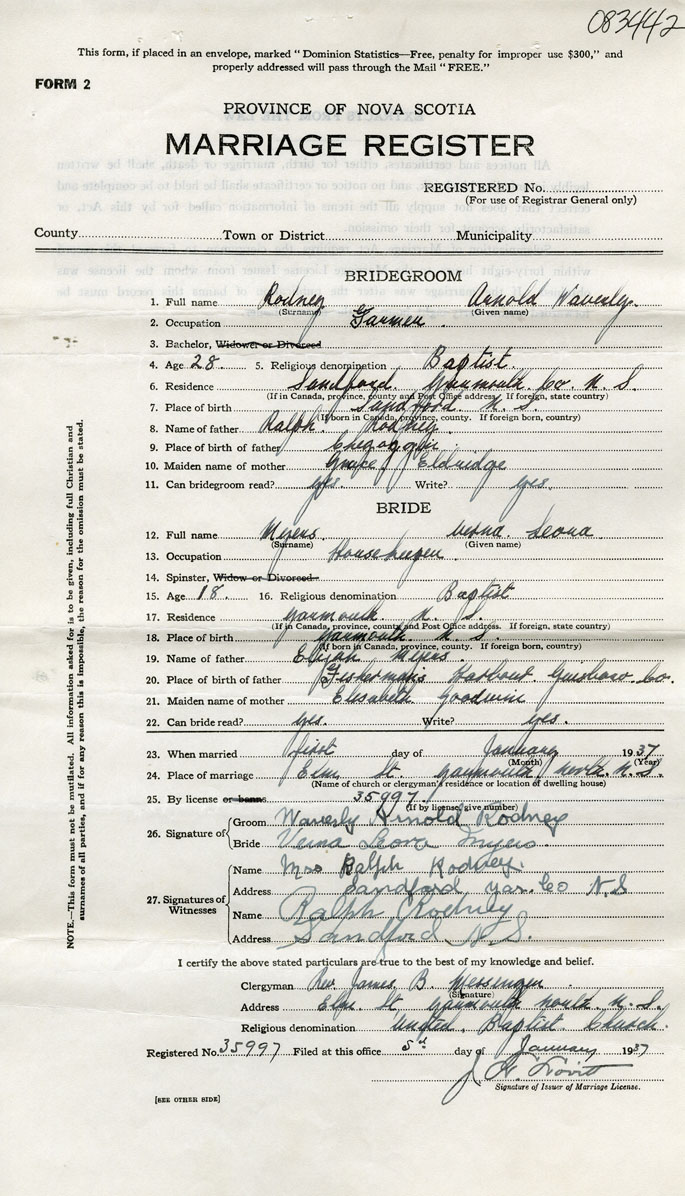 083442
This form, if placed in an envelope, marked "Dominion Statistics—Free, penalty for improper use $300," and
properly addressed will pass through the Mail "FREE."
FORM 2
PROVINCE OF NOVA SCOTIA
MARRIAGE REGISTER
REGISTERED No.
(For use of Registrar General only)
County Town or District Municipality
BRIDEGROOM
1. Full name Rodney Arnold Waverley.
(Surname) (Given name)
2. Occupation Farmer.
3. Bachelor, Widower or Divorced
4. Age 28. 5. Religious denomination Baptist.
6. Residence Sandford. Yarmouth Co. N. S.
(If in Canada, province, county and Post Office address. If foreign, state country)
7. Place of birth Sandford N. S.
(If born in Canada, province, county. If foreign, country)
8. Name of father Ralph Rodney.
9. Place of birth of father Chegoggin.
10. Maiden name of mother Eldridge
11. Can bridegroom read? yes. Write? yes.
BRIDE
12. Full name Myers. Verna Leona
(Surname) (Given name)
13. Occupation Housekeeper.
14. Spinster, Widow or Divorced
15. Age 18. 16. Religious denomination Baptist
17. Residence Yarmouth N. S.
(If in Canada, province, county and Post Office address. If foreign, state country)
18. Place of birth Yarmouth N. S.
(If born in Canada, province, county. If foreign, country)
19. Name of father Elijah Myers.
20. Place of birth of father Fishermans Harbour Guisboro. Co.
21. Maiden name of mother Elisabeth Goodwin
22. Can bride read? yes. Write? yes.
23. When married first day of January 1937
(Month) (Year)
24. Place of marriage Elm St. Yarmouth North. N.S.
(Name of church or clergyman's residence or location of dwelling house)
25. By license or banns 35997
(If by license, give number)
26. Signature of Groom Waverly Arnold Rodney
Bride Verna Leona Myers.
27. Signatures of Witnesses Name Mrs Ralph Rodney.
Address Sandford, Yar. Co N.S
Name Ralph Rodney
Address Sandford N.S.
I certify the above stated particulars are true to the best of my knowledge and belief.
Clergyman Rev. James B. Messenger
(Signature)
Address Elm St Yarmouth North. N. S.
Religious denomination United Baptist Church.
Registered No. 35997 Filed at this office 5th day of January 1937
Signature of Issuer of Marriage License.
[SEE OTHER SIDE]
NOTE.—This form must not be mutilated. All information asked for is to be given, including full Christian and
surnames of all parties, and if for any reason this is impossible, the reason for the omission must be stated.